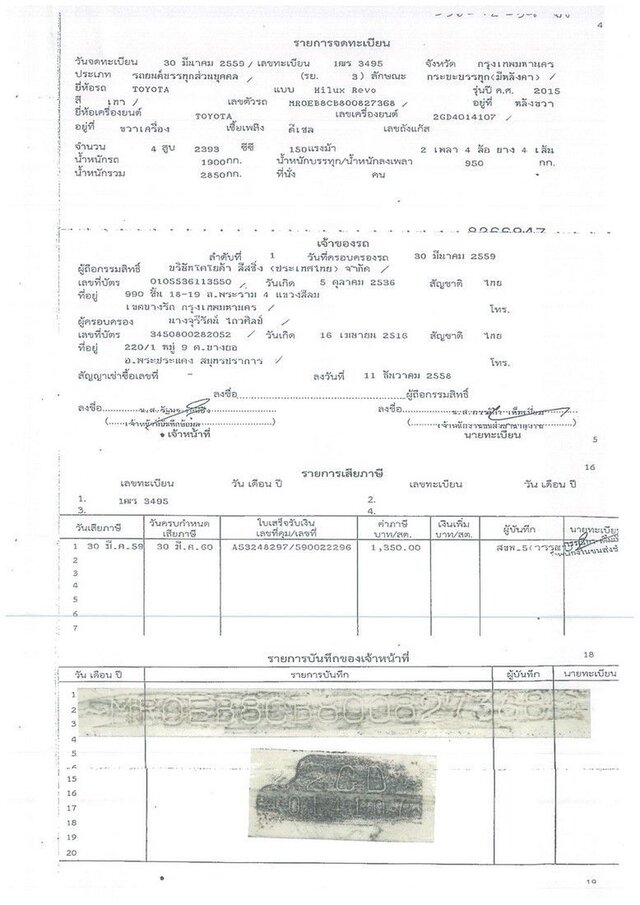 4
รายการจดทะเบียน
วันจดทะเบียน 30 มีนาคม 2559 / เลขทะเบียน 1ฒร 3495 จังหวัด กรุงเทพมหานคร
ประเภท รถยนต์บรรทุกส่วนบุคคล / (รย. 3) ลักษณะ กระบะบรรทุก(มีหลังคา) /
ยี่ห้อรถ TOYOTA แบบ Hilux Revo รุ่นปี ค.ศ. 2015
สี เทา / เลขตัวรถ MR0EB8CB800827368 / อยู่ที่ หลังขวา
ยี่ห้อเครื่องยนต์ TOYOTA เลขเครื่องยนต์ 2GD4014107 /
อยู่ที่ ขวาเครื่อง เชื้อเพลิง ดีเซล เลขถังแก๊ส
จำนวน 4 สูบ 2393 ซีซี 150แรงม้า 2 เพลา 4 ล้อ ยาง 4 เส้น
น้ำหนักรถ 1900กก. น้ำหนักบรรทุก/น้ำหนักลงเพลา 950 กก.
น้ำหนักรวม 2850กก. ที่นั่ง คน
8266947
เจ้าของรถ
ลำดับที่ 1 วันที่ครอบครองรถ 30 มีนาคม 2559
ผู้ถือกรรมสิทธิ์ บริษัทโตโยต้า ลีสซิ่ง (ประเทศไทย) จำกัด /
เลขที่บัตร 0105536113550 / วันเกิด 5 ตุลาคม 2536 สัญชาติ ไทย
ที่อยู่ 990 ชั้น 18-19 ถ.พระราม 4 แขวงสีลม
เขตบางรัก กรุงเทพมหานคร / โทร.
ผู้ครอบครอง นางจุรีรัตน์ ไถวศิลป์ /
เลขที่บัตร 3450800282052 / วันเกิด 16 เมษายน 2516 สัญชาติ ไทย
ที่อยู่ 220/1 หมู่ 9 ต.บางยอ
อ.พระประแดง สมุทรปราการ / โทร.
สัญญาเช่าซื้อเลขที่ - ลงวันที่ 11 ธันวาคม 2558
ลงชื่อ ผู้ถือกรรมสิทธิ์
ลงชื่อ น.ส. ลงชื่อ น.ส.
(เจ้าหน้าที่บันทึกข้อมูล)
เจ้าหน้าที่ นายทะเบียน
5
16
รายการเสียภาษี
เลขทะเบียน วัน เดือน ปี เลขทะเบียน วัน เดือน ปี
1. 1ฒร 3495 2.
3. 4.
วันเสียภาษี วันครบกำหนดเสียภาษี ใบเสร็จรับเงิน เลขที่คุม/เลขที่ ค่าภาษี บาท/สต. เงินเพิ่ม บาท/สต. ผู้บันทึก นายทะเบียน
1 30 มี.ค.59 30 มี.ค.60 A53248297/590022296 1,350.00 สขพ.5
2
3
4
5
6
7
18
รายการบันทึกของเจ้าหน้าที่
วัน เดือน ปี รายการบันทึก ผู้บันทึก นายทะเบียน
1
2 MR0EB8CB800827368
3
4
5
6
15 2GD
16 4014107
17
18
19
20
19